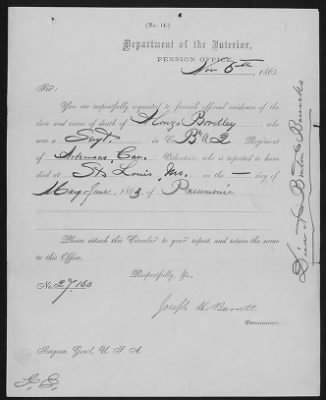 (No. 16)
Department of the Interior,
PENSION OFFICE,
Nov 5th, 186
Sir:
You are respectfully requested to furnish official evidence of the
date and cause of death of Alonzo Bordley who
was a Sergt. in Co B " 2 Regiment
of Arkansas Cav. Volunteers, who is reported to have
died at St Louis, Mo. on the — day
of May or June, 1863, of Pneumonia
Please attach this Circular to your report, and return the same
to this Office.
Respectfully, &c.,
No. 27,160
Joseph H. Barrett
Commissioner.
Surgeon Genl, U. S. A.
Died at Benton Barracks